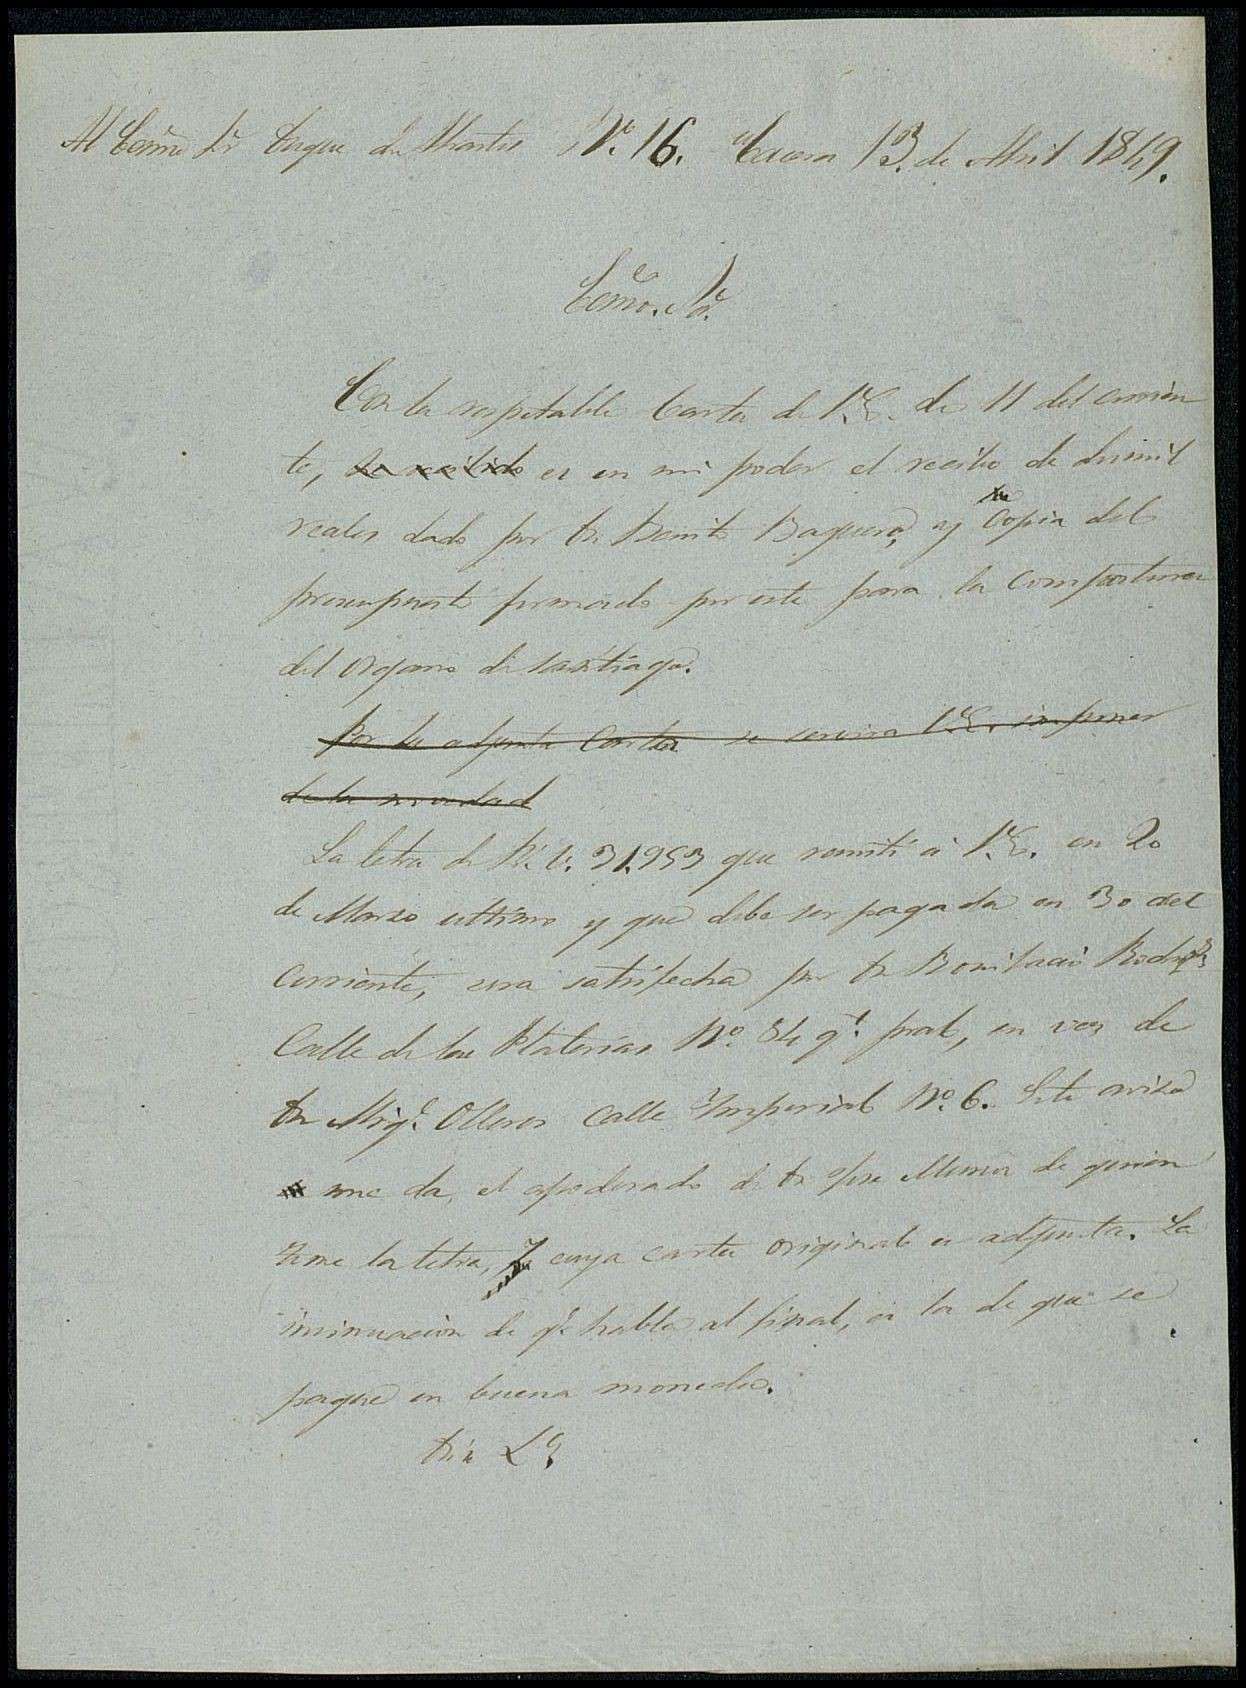 Al Excmo Sr Duque de Montes Nº. 16. Cácera 13. de Abril 1849.
Excmo. Sor.
Con la respetable Carta de V.E. de 11 del corrien
te, he recibido es en mi poder el recibo de dosmil
reales dado por Dn Benito Baquero, y la Copia del
presupuesto formado por este para la Compostura
del organo de Santiago.
Por la adjunta Carta se servira V.E. imponer
de la novedad
La letra de Rs. Vn. 31.953 que remití á V.E. en 20
de Marzo ultimo y que debe ser pagada en 30 del
corriente, sera satisfecha por Dn Bonifacio Rodrigz
Calle de las Platerías Nº 84 qto. pral, en vez de
Dn Migl. Olleros Calle Imperial Nº. 6. Este aviso
me da, el apoderado de Dn Jose de quien
tome la letra, cuya carta original es adjunta. La
insinuacion de qe. habla al final, es la de que se
pague en buena moneda.